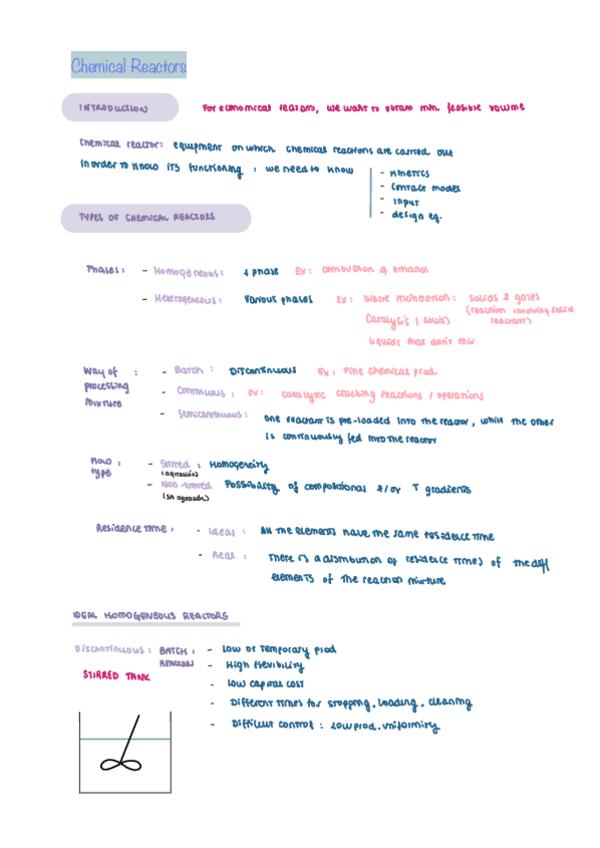 Chemical Reactors
INTRODUCTION
For economical reasons, we want to obtain min. feasible volume
Chemical reactor: equipment on which chemical reactions are carried out
In order to know its functioning : we need to know
- Kinetics
- Contact model
- Input
- design eq.
TYPES OF CHEMICAL REACTORS
Phases: - Homogeneous: 1 phase Ex: combustion of ethanol
- Heterogeneous: Various phases Ex: Waste incineration: solids & gases
(reaction involving solid reactant)
Catalysis (solid)
liquids that don't mix
Way of processing mixture : - Batch: Discontinuous Ex: Fine chemical prod.
- Continuous: Ex: catalytic cracking reactions / operations
- Semicontinuous: One reactant is pre-loaded into the reactor, while the other
is continuously fed into the reactor
Flow type : - Stirred: Homogeneity
(agitación)
- Non-stirred Possibility of compositional &/or T gradients
(sin agitación)
Residence time: - Ideal: All the elements have the same residence time
- Real: There is a distribution of residence times of the diff
elements of the reaction mixture
IDEAL HOMOGENEOUS REACTORS
Discontinuous: BATCH REACTORS: - Low or temporary prod
STIRRED TANK
- High flexibility
- Low capital cost
- Different times for stopping, loading, cleaning
- Difficult control: low prod. uniformity